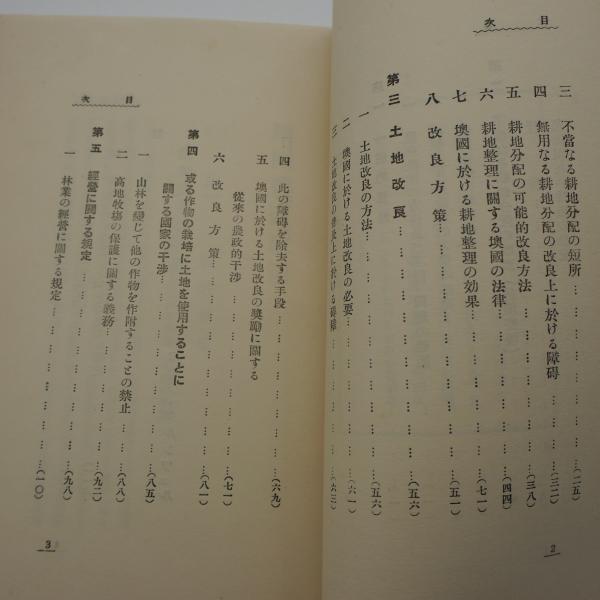 目次
三 不當なる耕地分配の短所……………(二五)
四 無用なる耕地分配の改良上に於ける障碍……(三二)
五 耕地分配の可能的改良方法……………(三八)
六 耕地整理に關する墺國の法律……………(四四)
七 墺國に於ける耕地整理の効果……………(七一)
八 改良方策……………(五一)
第三 土地改良……………(五六)
一 土地改良の方法……………(五六)
二 墺國に於ける土地改良の必要……………(六一)
三 土地改良の實施上に於ける障碍……(六三)
2
目次
四 此の障碍を除去する手段……………(六九)
五 墺國に於ける土地改良の奬勵に關する
從來の農政的干渉……………(七一)
六 改良方策……………(八一)
第四 或る作物の栽培に土地を使用することに
關する國家の干渉……………(八五)
一 山林を變じて他の作物を作附することの禁止……(八五)
二 高地牧場の保護に關する義務……………(八八)
第五 經營に關する規定……………(九二)
一 林業の經營に關する規定……………(九八)
(一〇)
3